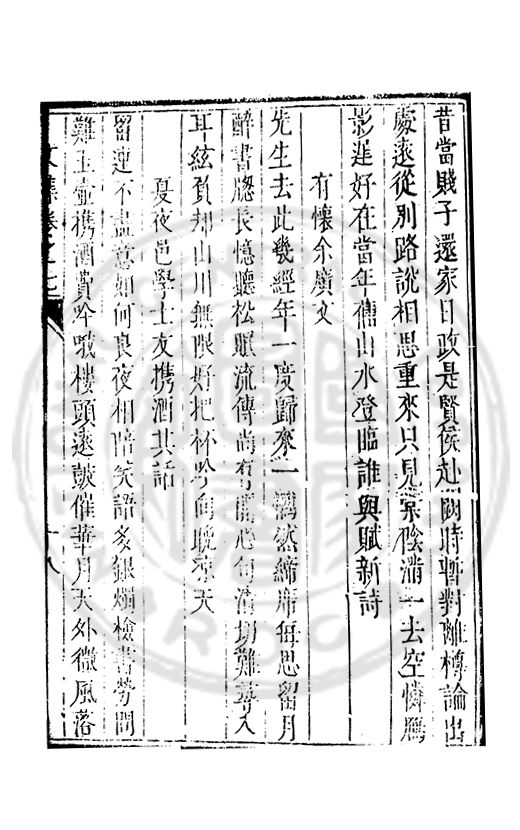 昔當賤子還家日政是賢侯赴闕時暫對離樽論出
處遠從別路說相思重來只見棠陰滿一去空憐鴈
影遲好在當年舊山水登臨誰與賦新詩
有懷余廣文
先生去此幾經年一度歸來一惘然締席每思留月
醉書牕長憶聽松眠流傳尚有 心句清切難尋入
耳絃負却山川無限好把杯吟向晚凉天
夏夜邑學士友携酒共話
留連不盡意如何良夜相陪笑語多銀燭檢書勞問
難玉壺携酒費吟哦樓頭遠鼓催華月天外微風落
文集卷之十七
十八